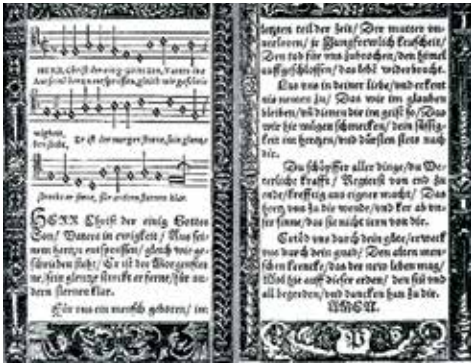 wigkeit,
Er ist der morgensterne, sein glantze
HERR Christ der einig Gottes
Son/ Vaters in ewigkeit/ Aus sei=
nem hertzn entsprossen/ gleich wie ge=
schrieben steht/ Er ist der Morgenster=
ne/ sein glentze streckt er ferne/ für an=
dern sternen klar.
Für uns ein mensch geboren/ im
letzten teil der zeit/ Der mutter un=
verloren/ jr Jungfrewlich keuscheit/
Den tod für uns zubrochen/ den himel
auffgeschlossen/ das leben widerbracht.
Las uns in deiner liebe/ und erkent
nis nemen zu/ Das wir im glauben
bleiben/ und dienen dir im geist so/ Das
wir hie mügen schmecken/ dein süssig=
keit im hertzen/ und dürsten stets nach
dir.
Du schöpffer aller dinge/ du Ve=
terliche krafft/ Regierst von end zu
ende/ krefftig aus eigner macht/ Das
hertz uns zu dir wende/ und ker ab un=
ser sinne/ das sie nicht irrn von dir.
Ertöd uns durch dein güte/ erweck
uns durch dein gnad/ Den alten men=
schen krencke/ das der new leben mag/
Wol hie auff dieser erden/ den sin und
all begerden/ und dancken han zu dir.
AMEN.